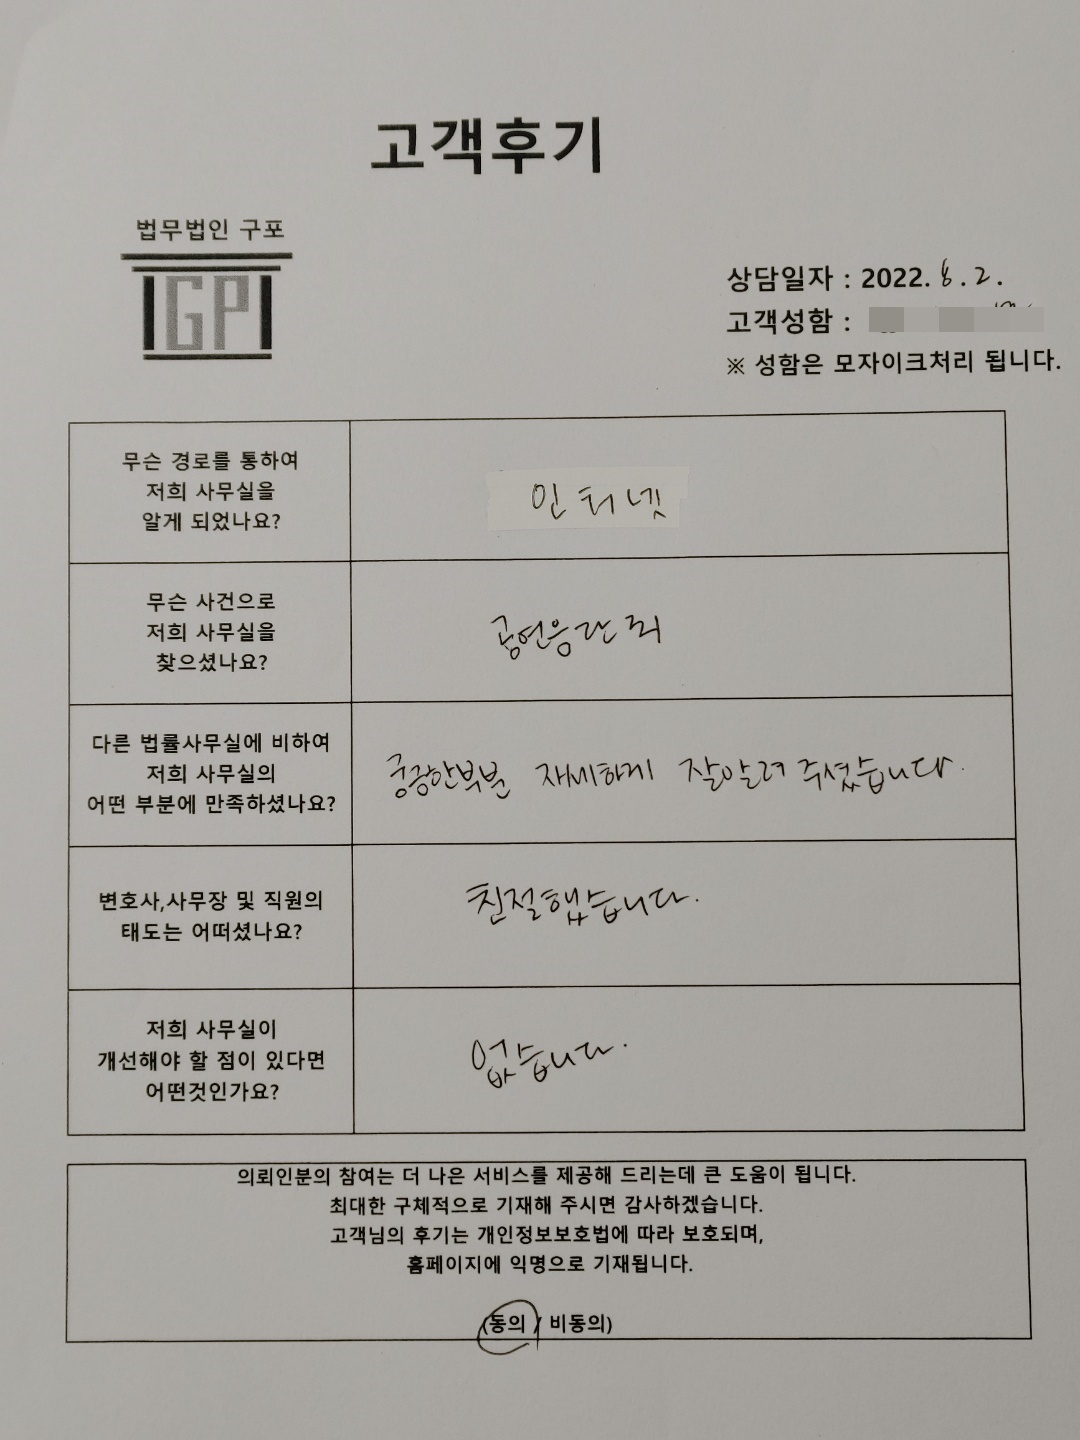 고객후기
법무법인 구포
GP
상담일자 : 2022. 8. 2.
고객성함 :
※ 성함은 모자이크처리 됩니다.
무슨 경로를 통하여
저희 사무실을
알게 되었나요?
인터넷
무슨 사건으로
저희 사무실을
찾으셨나요?
공연음란죄
다른 법률사무실에 비하여
저희 사무실의
어떤 부분에 만족하셨나요?
궁금한부분 자세하게 잘알려 주셨습니다.
변호사,사무장 및 직원의
태도는 어떠셨나요?
친절했습니다.
저희 사무실이
개선해야 할 점이 있다면
어떤것인가요?
없습니다.
의뢰인분의 참여는 더 나은 서비스를 제공해 드리는데 큰 도움이 됩니다.
최대한 구체적으로 기재해 주시면 감사하겠습니다.
고객님의 후기는 개인정보보호법에 따라 보호되며,
홈페이지에 익명으로 기재됩니다.
(동의 / 비동의)